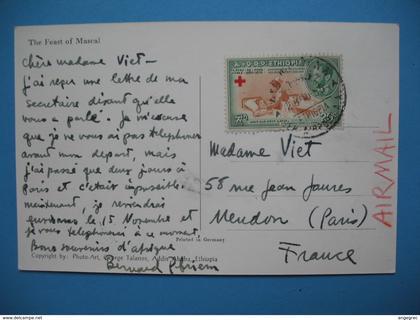 The Feast of Mascal
Chère madame Viet-
j'ai reçu une lettre de ma
secretaire disant qu'elle
vous a parlé. Je m'excuse
que je ne vous ai pas telephoner
avant mon depart, mais
j'ai passé que deux jours à
Paris et c'etait impossible.
maintenant, je reviendrai
le 15 Novembre et
je vous telephonerai à ce moment.
Bons souvenirs d'afrique
Bernard
ETHIOPIA
Madame Viet
58 rue Jean Jaures
Meudon (Paris)
France
AIRMAIL
Printed in Germany
Copyright by: Photo-Art, George Talanos, Addis Ababa Ethiopia